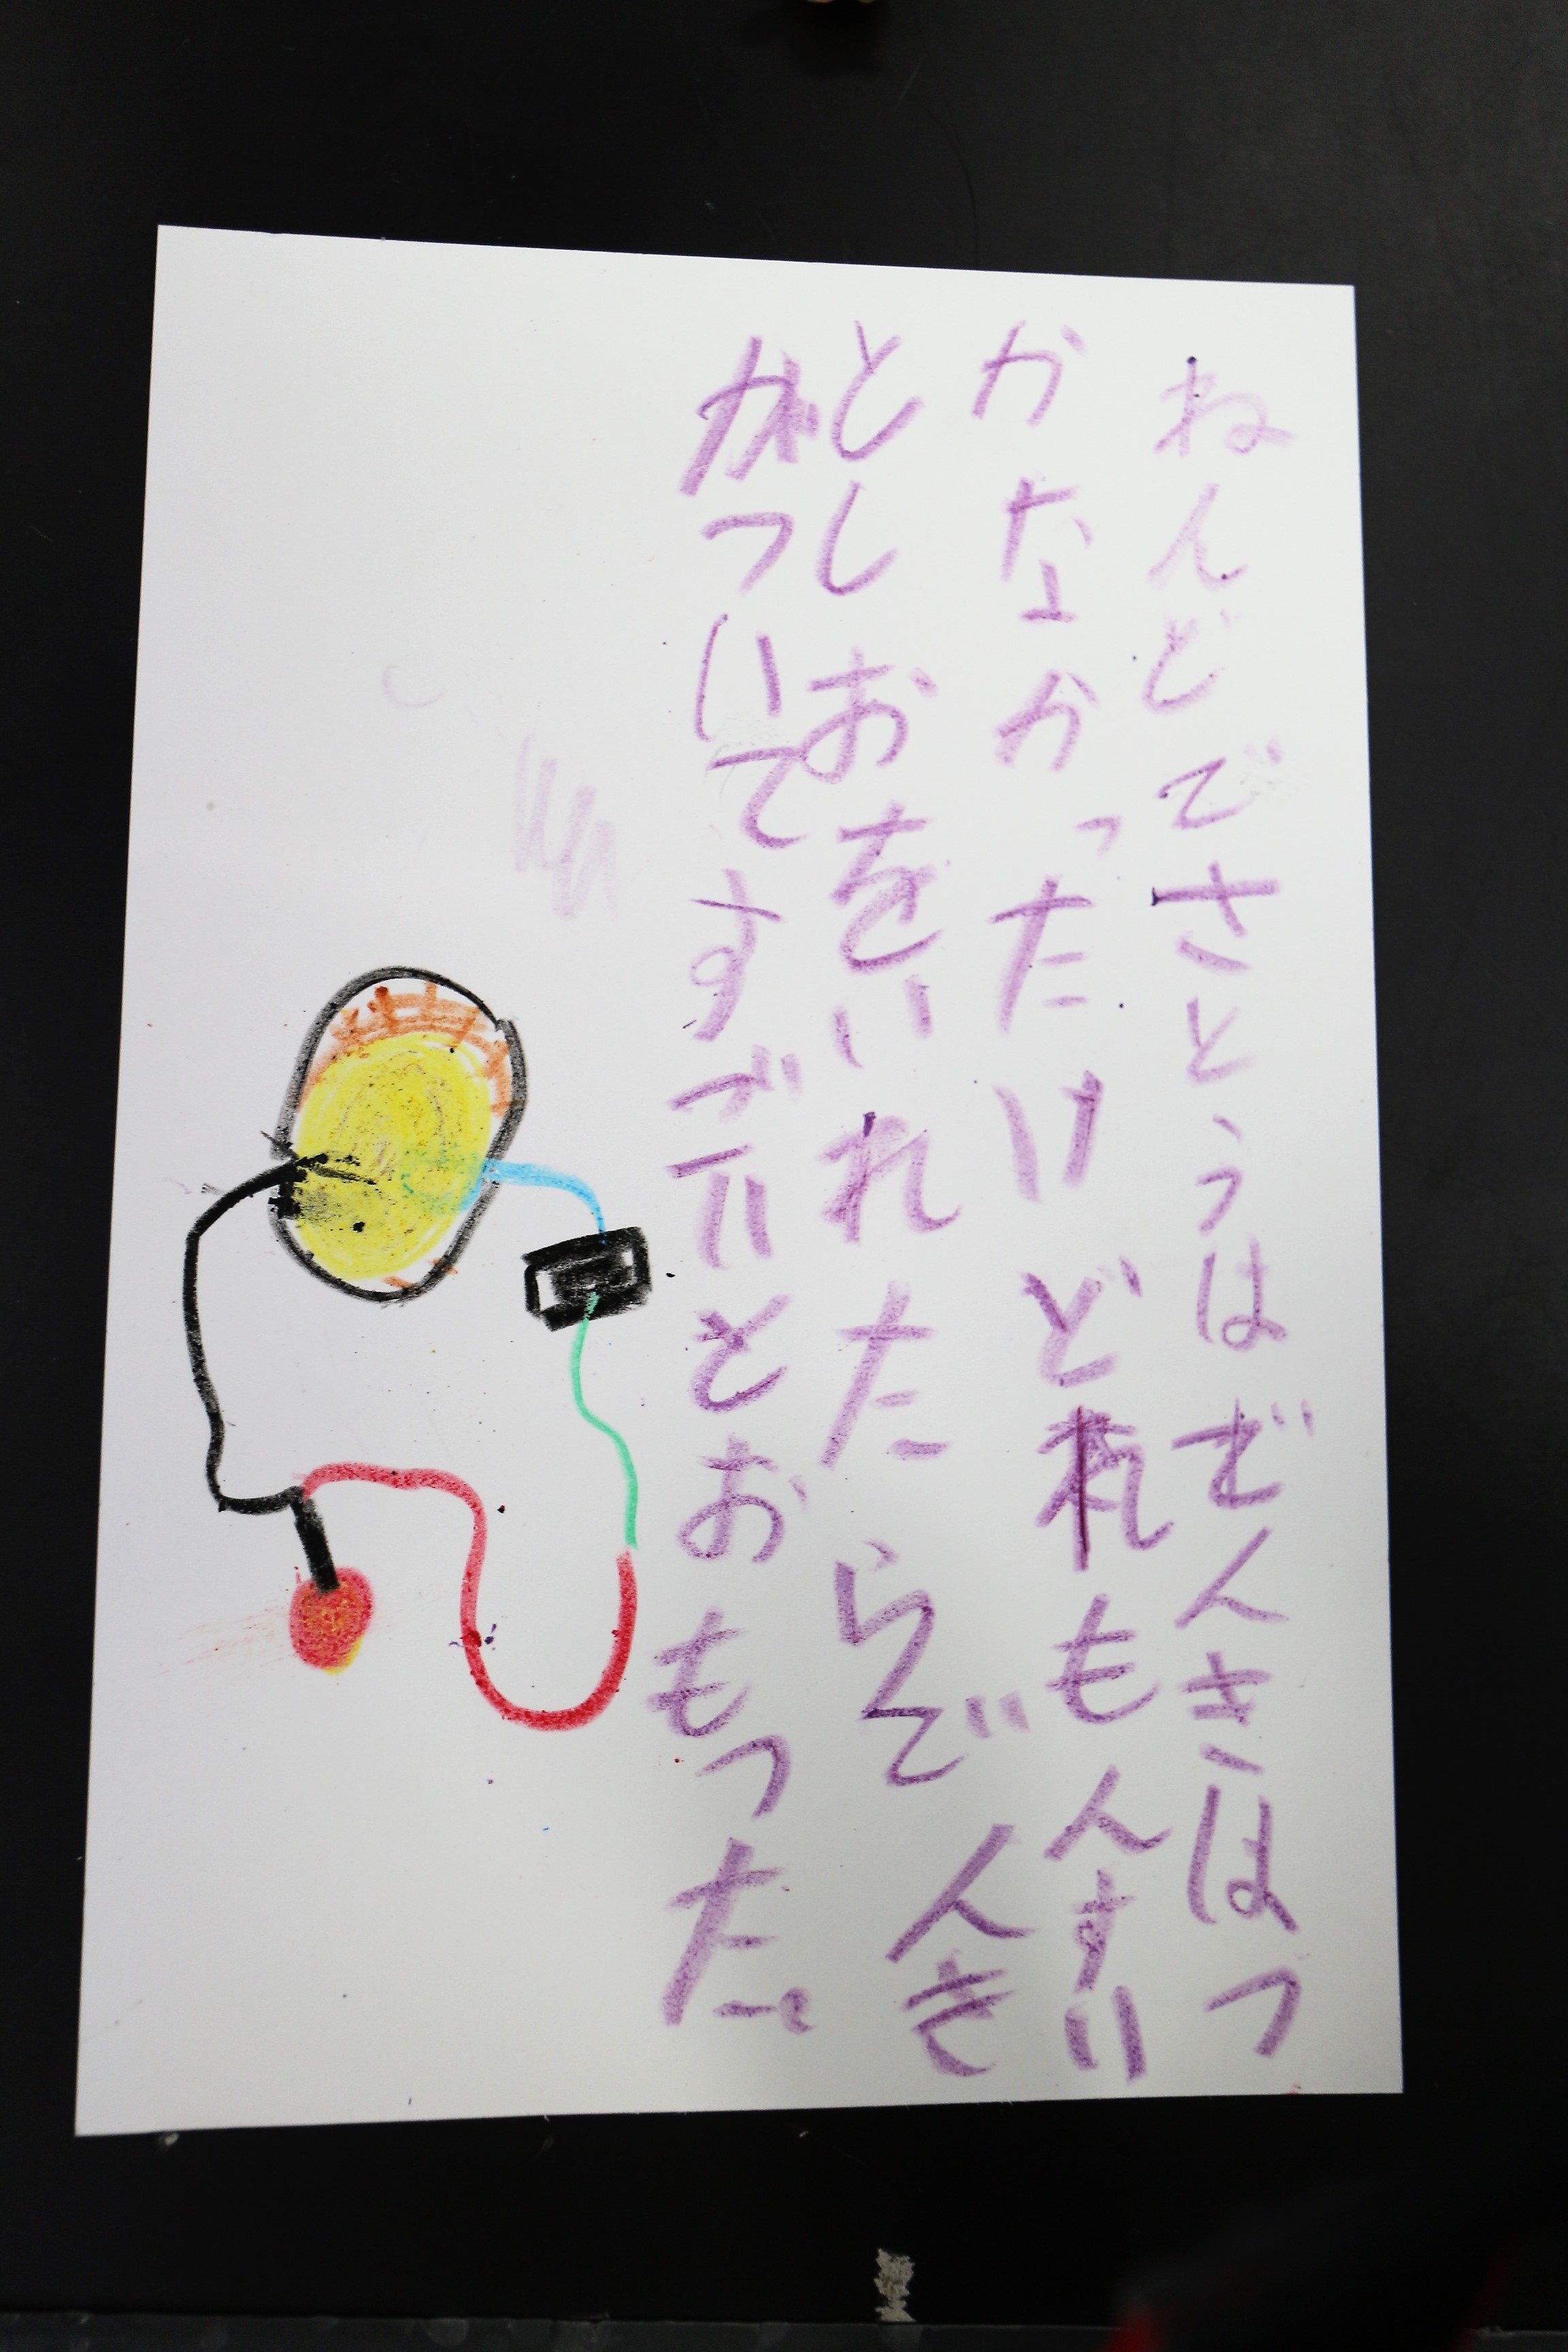 ねんどでさとうはぜんきはつ
かなかったけどれもんすい
としおをいれたらでんき
がついてすごいとおもった。